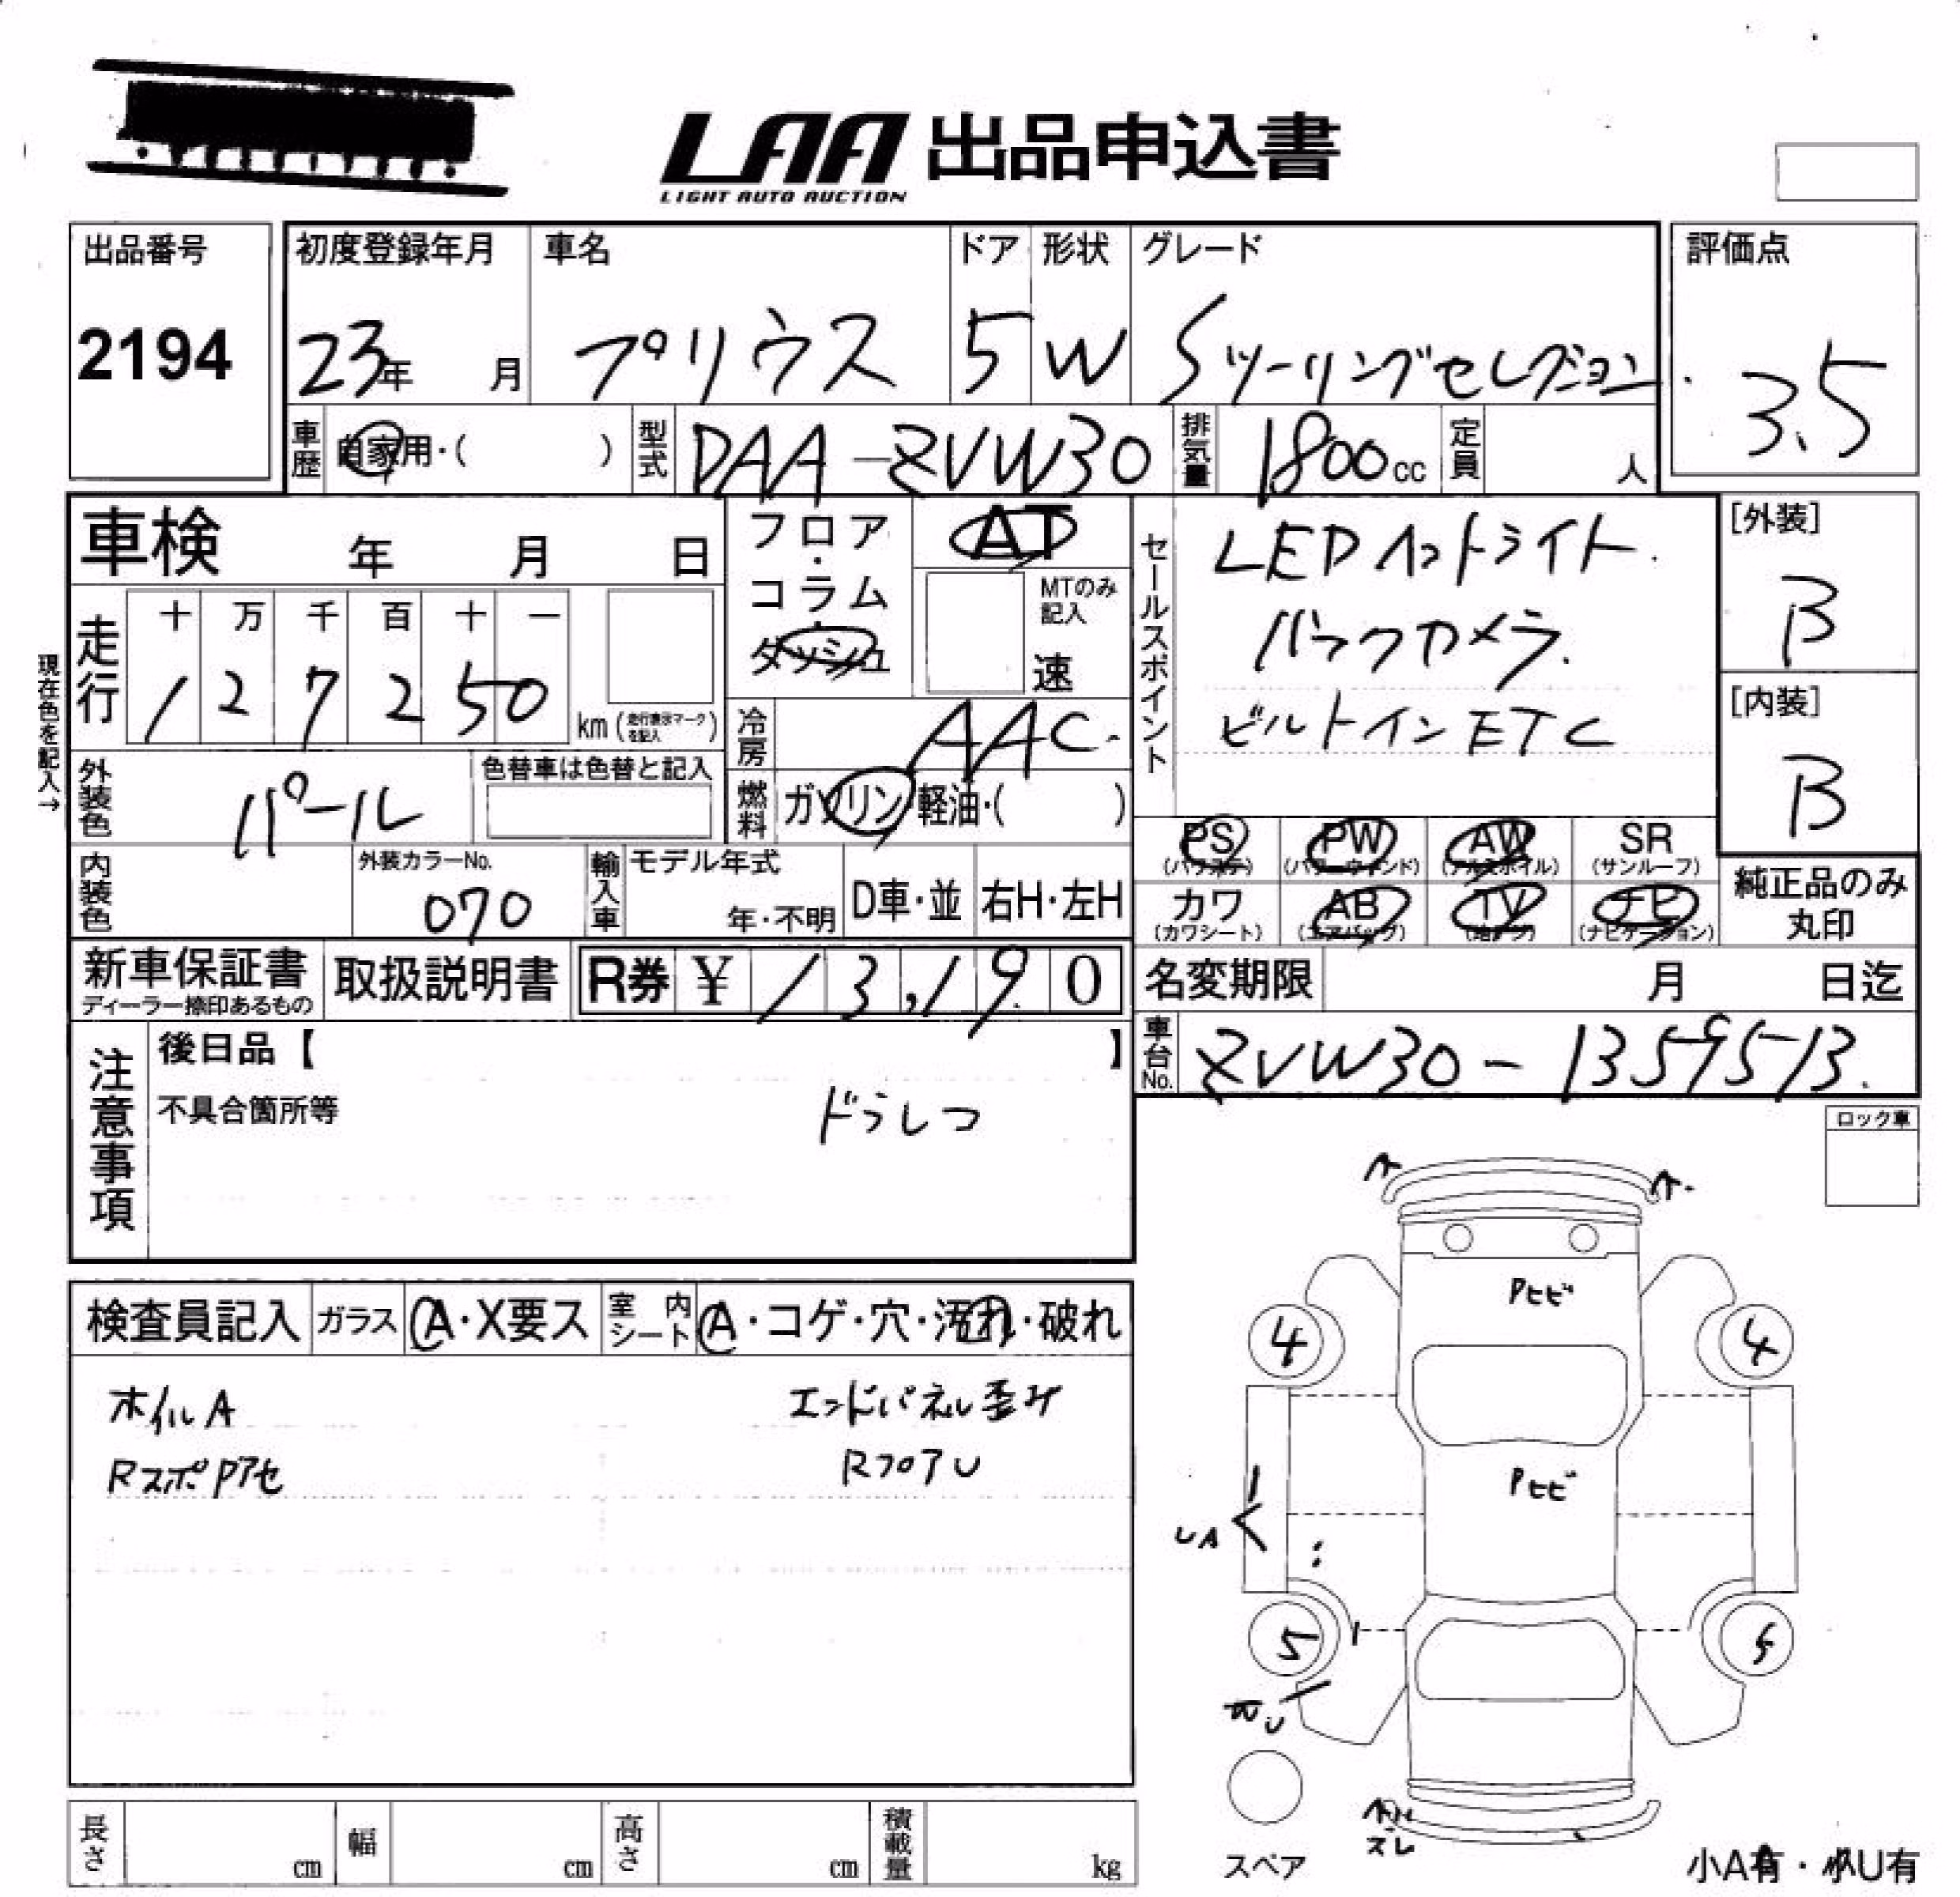 LAA 出品申込書
LIGHT AUTO AUCTION
出品番号
2194
初度登録年月
23年 月
車名
プリウス
ドア
5
形状
W
グレード
Sツーリングセレクション
評価点
3.5
車歴
自家用・( )
型式
DAA-ZVW30
排気量
1800cc
定員
人
車検 年 月 日
フロア・コラム・ダッシュ
AT
MTのみ記入
速
セールスポイント
LEDヘットライト.
バックカメラ.
ビルトインETC
[外装]
B
[内装]
B
現在色を記入→
走行
十 万 千 百 十 一
1 2 7 2 5 0
km(走行表示マークを記入)
冷房
AAC.
外装色
パール
色替車は色替と記入
燃料
ガソリン・軽油・( )
PS (パワステ)
PW (パワーウィンド)
AW (アルミホイル)
SR (サンルーフ)
カワ (カワシート)
AB (エアバッグ)
TV
ナビ (ナビゲーション)
純正品のみ丸印
内装色
外装カラーNo.
070
輸入車
モデル年式
年・不明
D車・並
右H・左H
新車保証書
ディーラー捺印あるもの
取扱説明書
R券 ¥ 13,190
名変期限 月 日迄
車台No.
ZVW30-1359513.
注意事項
後日品【 】
不具合箇所等
どうしつ
ロック車
検査員記入
ガラス
A・X要ス
室内シート
A・コゲ・穴・汚れ・破れ
ホイルA
エンドパネル歪み
RスポPアセ
RフロアU
Pヒビ
4
4
Pヒビ
UA
5
5
スペア
ズレ
小A有・小U有
長さ cm
幅 cm
高さ cm
積載量 kg